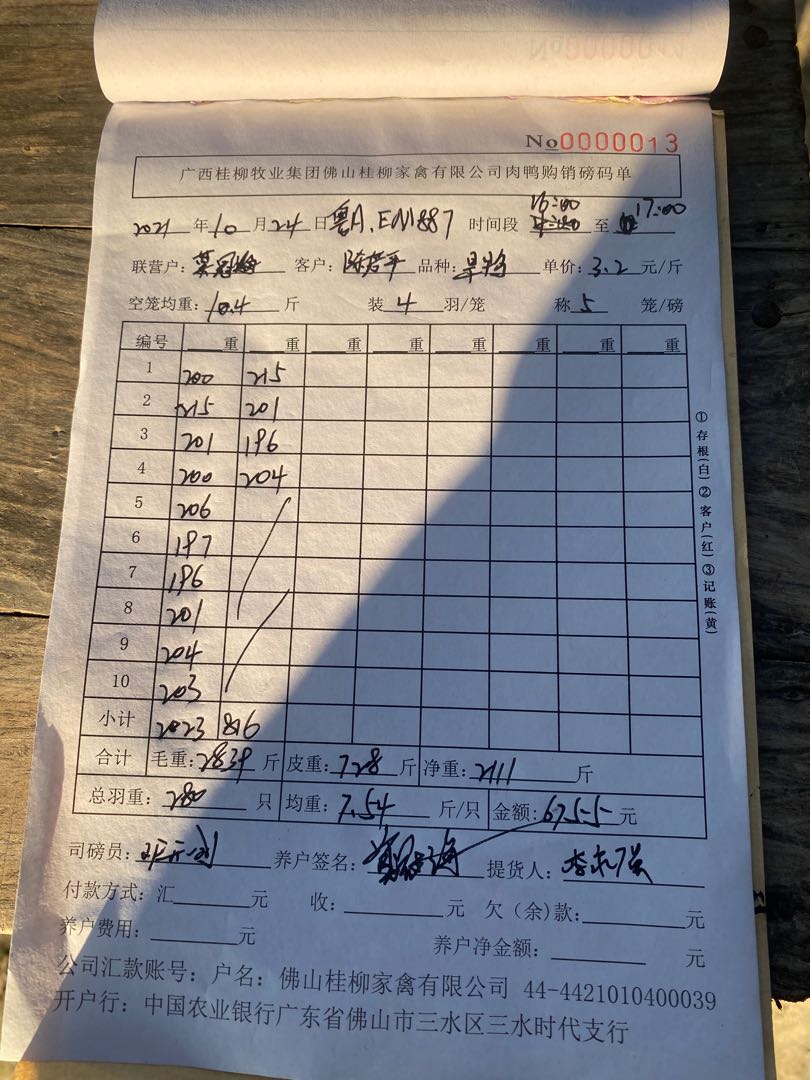 No0000012
No0000013
广西桂柳牧业集团佛山桂柳家禽有限公司肉鸭购销磅码单
2021年10月24日 粤A.EN1887 时间段 16:00 至 17:00
联营户: 客户: 陈若平 品种: 单价: 3.2 元/斤
空笼均重: 10.4 斤 装 4 羽/笼 称 5 笼/磅
编号 重 重 重 重 重 重 重 重
1 200 215
2 215 201
3 201 196
4 200 204
5 206
6 197
7 196
8 201
9 204
10 203
小计 2023 816
合计 毛重: 2839 斤 皮重: 728 斤 净重: 2111 斤
总羽重: 280 只 均重: 7.54 斤/只 金额: 6755 元
司磅员: 养户签名: 提货人:
付款方式: 汇 元 收: 元 欠(余)款: 元
养户费用: 元 养户净金额: 元
公司汇款账号: 户名: 佛山桂柳家禽有限公司 44-4421010400039
开户行: 中国农业银行广东省佛山市三水区三水时代支行
①存根(白)②客户(红)③记账(黄)